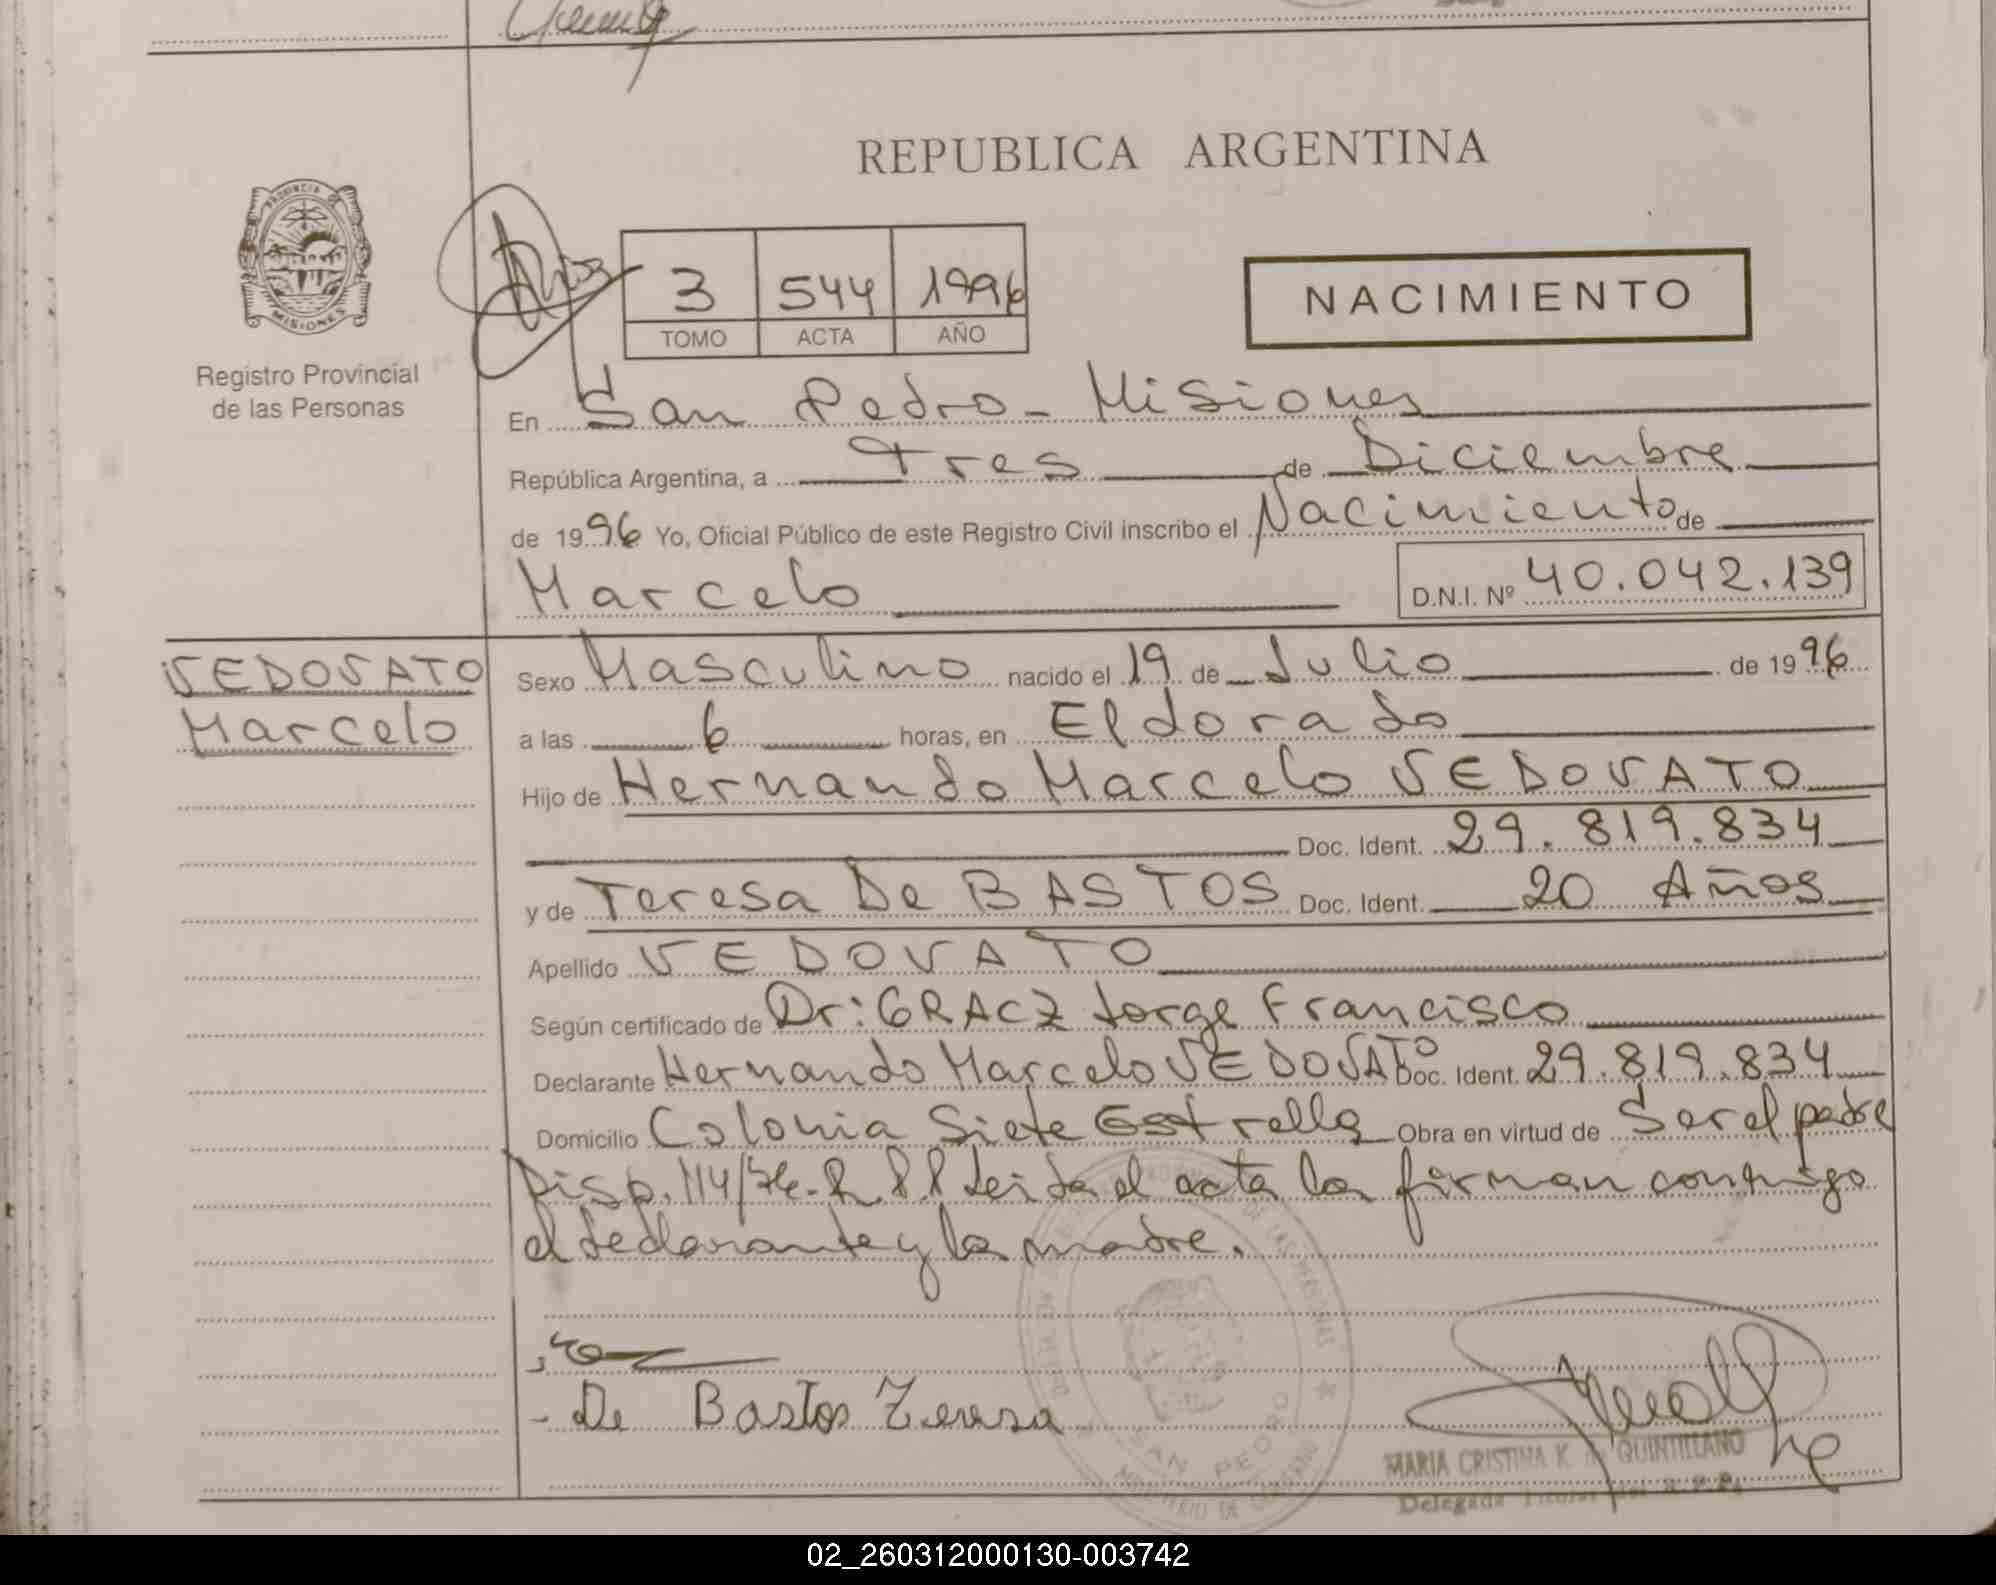 REPUBLICA ARGENTINA
PROVINCIA
MISIONES
Registro Provincial
de las Personas
3 544 1996
TOMO ACTA AÑO
NACIMIENTO
En San Pedro - Misiones
República Argentina, a Tres de Diciembre
de 1996 Yo, Oficial Público de este Registro Civil inscribo el Nacimiento de
Marcelo D.N.I. Nº 40.042.139
VEDOVATO
Marcelo
Sexo Masculino nacido el 19 de Julio de 1996
a las 6 horas, en Eldorado
Hijo de Hernando Marcelo VEDOVATO
Doc. Ident. 29.819.834
y de Teresa De BASTOS Doc. Ident. 20 Años
Apellido VEDOVATO
Según certificado de Dr: GRACZ Jorge Francisco
Declarante Hernando Marcelo VEDOVATO Doc. Ident. 29.819.834
Domicilio Colonia Siete Estrella Obra en virtud de Ser el padre
Disp. 114/76. Leida el acta la firman conmigo
el declarante y la madre.
- De Bastos Teresa
SAN PEDRO
MARIA CRISTINA K. de QUINTILLANO
Delegada Titular del R.P.P.
02_260312000130-003742